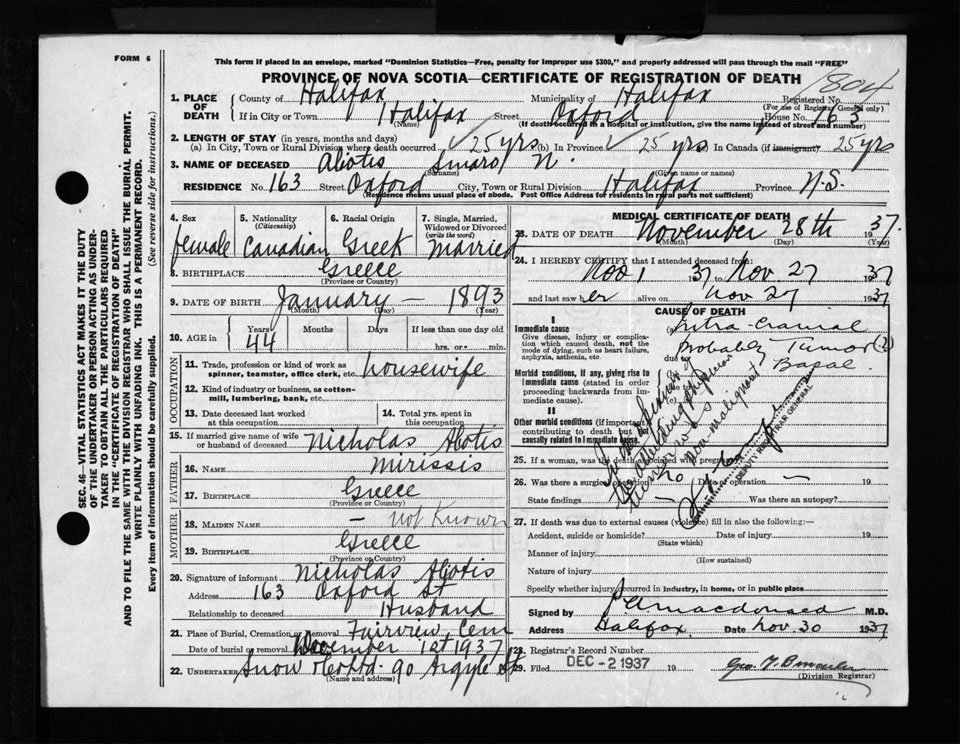 FORM 6
This form if placed in an envelope, marked "Dominion Statistics—Free, penalty for improper use $300," and properly addressed will pass through the mail "FREE"
PROVINCE OF NOVA SCOTIA—CERTIFICATE OF REGISTRATION OF DEATH
1804
1. PLACE OF DEATH { County of Halifax Municipality of Halifax Registered No.
(For use of Registrar General only)
If in City or Town Halifax Street Oxford House No. 163
(Name) (If death occurred in a hospital or institution, give the name instead of street and number)
2. LENGTH OF STAY (in years, months and days)
(a) In City, Town or Rural Division where death occurred 25 yrs (b) In Province 25 yrs In Canada (if immigrant) 25 yrs
3. NAME OF DECEASED Abotis Smaro N.
(Surname) (Given name or names)
RESIDENCE No. 163 Street Oxford City, Town or Rural Division Halifax Province N.S.
(Residence means usual place of abode. Post Office Address for residents in rural parts not sufficient)
4. Sex 5. Nationality (Citizenship) 6. Racial Origin 7. Single, Married, Widowed or Divorced (write the word)
female Canadian Greek Married
8. BIRTHPLACE Greece
(Province or Country)
9. DATE OF BIRTH January — 1893
(Month) (Day) (Year)
10. AGE in { Years Months Days If less than one day old
44 hrs. or min.
OCCUPATION
11. Trade, profession or kind of work as spinner, teamster, office clerk, etc. housewife
12. Kind of industry or business, as cotton-mill, lumbering, bank, etc.
13. Date deceased last worked at this occupation 14. Total yrs. spent in this occupation
15. If married give name of wife or husband of deceased Nicholas Abotis
FATHER
16. NAME Mirissis
17. BIRTHPLACE Greece
(Province or Country)
MOTHER
18. MAIDEN NAME — Not Known
19. BIRTHPLACE Greece
(Province or Country)
20. Signature of informant Nicholas Abotis
Address 163 Oxford St
Relationship to deceased Husband
21. Place of Burial, Cremation or Removal Fairview Cem
Date of burial or removal December 1st 1937
22. UNDERTAKER Snow & Co Ltd. 90 Argyle St
(Name and address)
MEDICAL CERTIFICATE OF DEATH
23. DATE OF DEATH November 28th 1937.
(Month) (Day) (Year)
24. I HEREBY CERTIFY that I attended deceased from
Nov 1 1937, to Nov 27 1937
and last saw her alive on Nov 27 1937
CAUSE OF DEATH
I
Immediate cause (a) Intra-Cranial
Give disease, injury or complication which caused death, not the mode of dying, such as heart failure, asphyxia, asthenia, etc.
due to Probably Tumor (?)
Basal.
Morbid conditions, if any, giving rise to immediate cause (stated in order proceeding backwards from immediate cause).
II
Other morbid conditions (if important) contributing to death but not causally related to immediate cause.
the attending physician
tumor was
non-malignant
DEPUTY REGISTRAR GENERAL
25. If a woman, was the death associated with pregnancy?
26. Was there a surgical operation? no Date of operation — 19
State findings Was there an autopsy?
27. If death was due to external causes (violence) fill in also the following:—
Accident, suicide or homicide? Date of injury 19
(State which)
Manner of injury
(How sustained)
Nature of injury
Specify whether injury occurred in industry, in home, or in public place
Signed by Macdonald M.D.
Address Halifax. Date Nov. 30 1937
28. Registrar's Record Number
29. Filed DEC - 2 1937 19 Geo.
(Division Registrar)
SEC. 46—VITAL STATISTICS ACT MAKES IT THE DUTY OF THE UNDERTAKER OR PERSON ACTING AS UNDERTAKER TO OBTAIN ALL THE PARTICULARS REQUIRED IN THE "CERTIFICATE OF REGISTRATION OF DEATH" AND TO FILE THE SAME WITH THE DIVISION REGISTRAR WHO SHALL ISSUE THE BURIAL PERMIT.
WRITE PLAINLY WITH UNFADING INK. THIS IS A PERMANENT RECORD.
Every item of information should be carefully supplied. (See reverse side for instructions.)